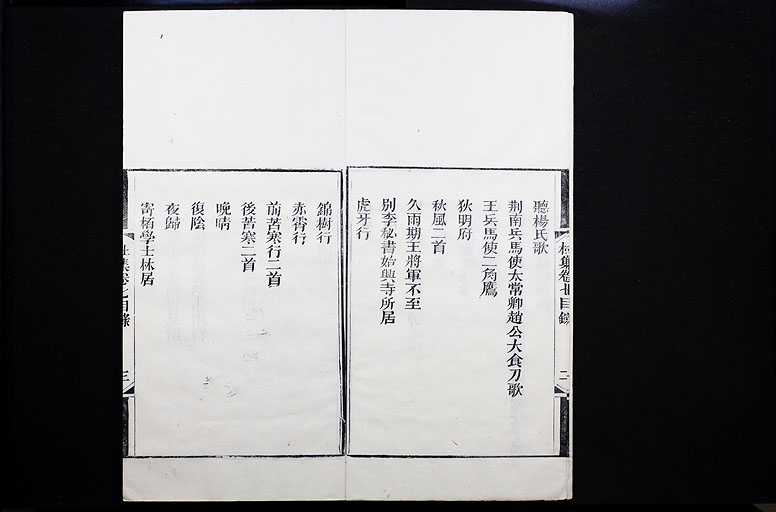 聽楊氏歌
荆南兵馬使太常卿趙公大食刀歌
王兵馬使二角鷹
狄明府
秋風二首
久雨期王將軍不至
別李秘書始興寺所居
虎牙行
錦樹行
赤霄行
前苦寒行二首
後苦寒二首
晚晴
復陰
夜歸
寄栢學士林居
杜集卷七目錄
三